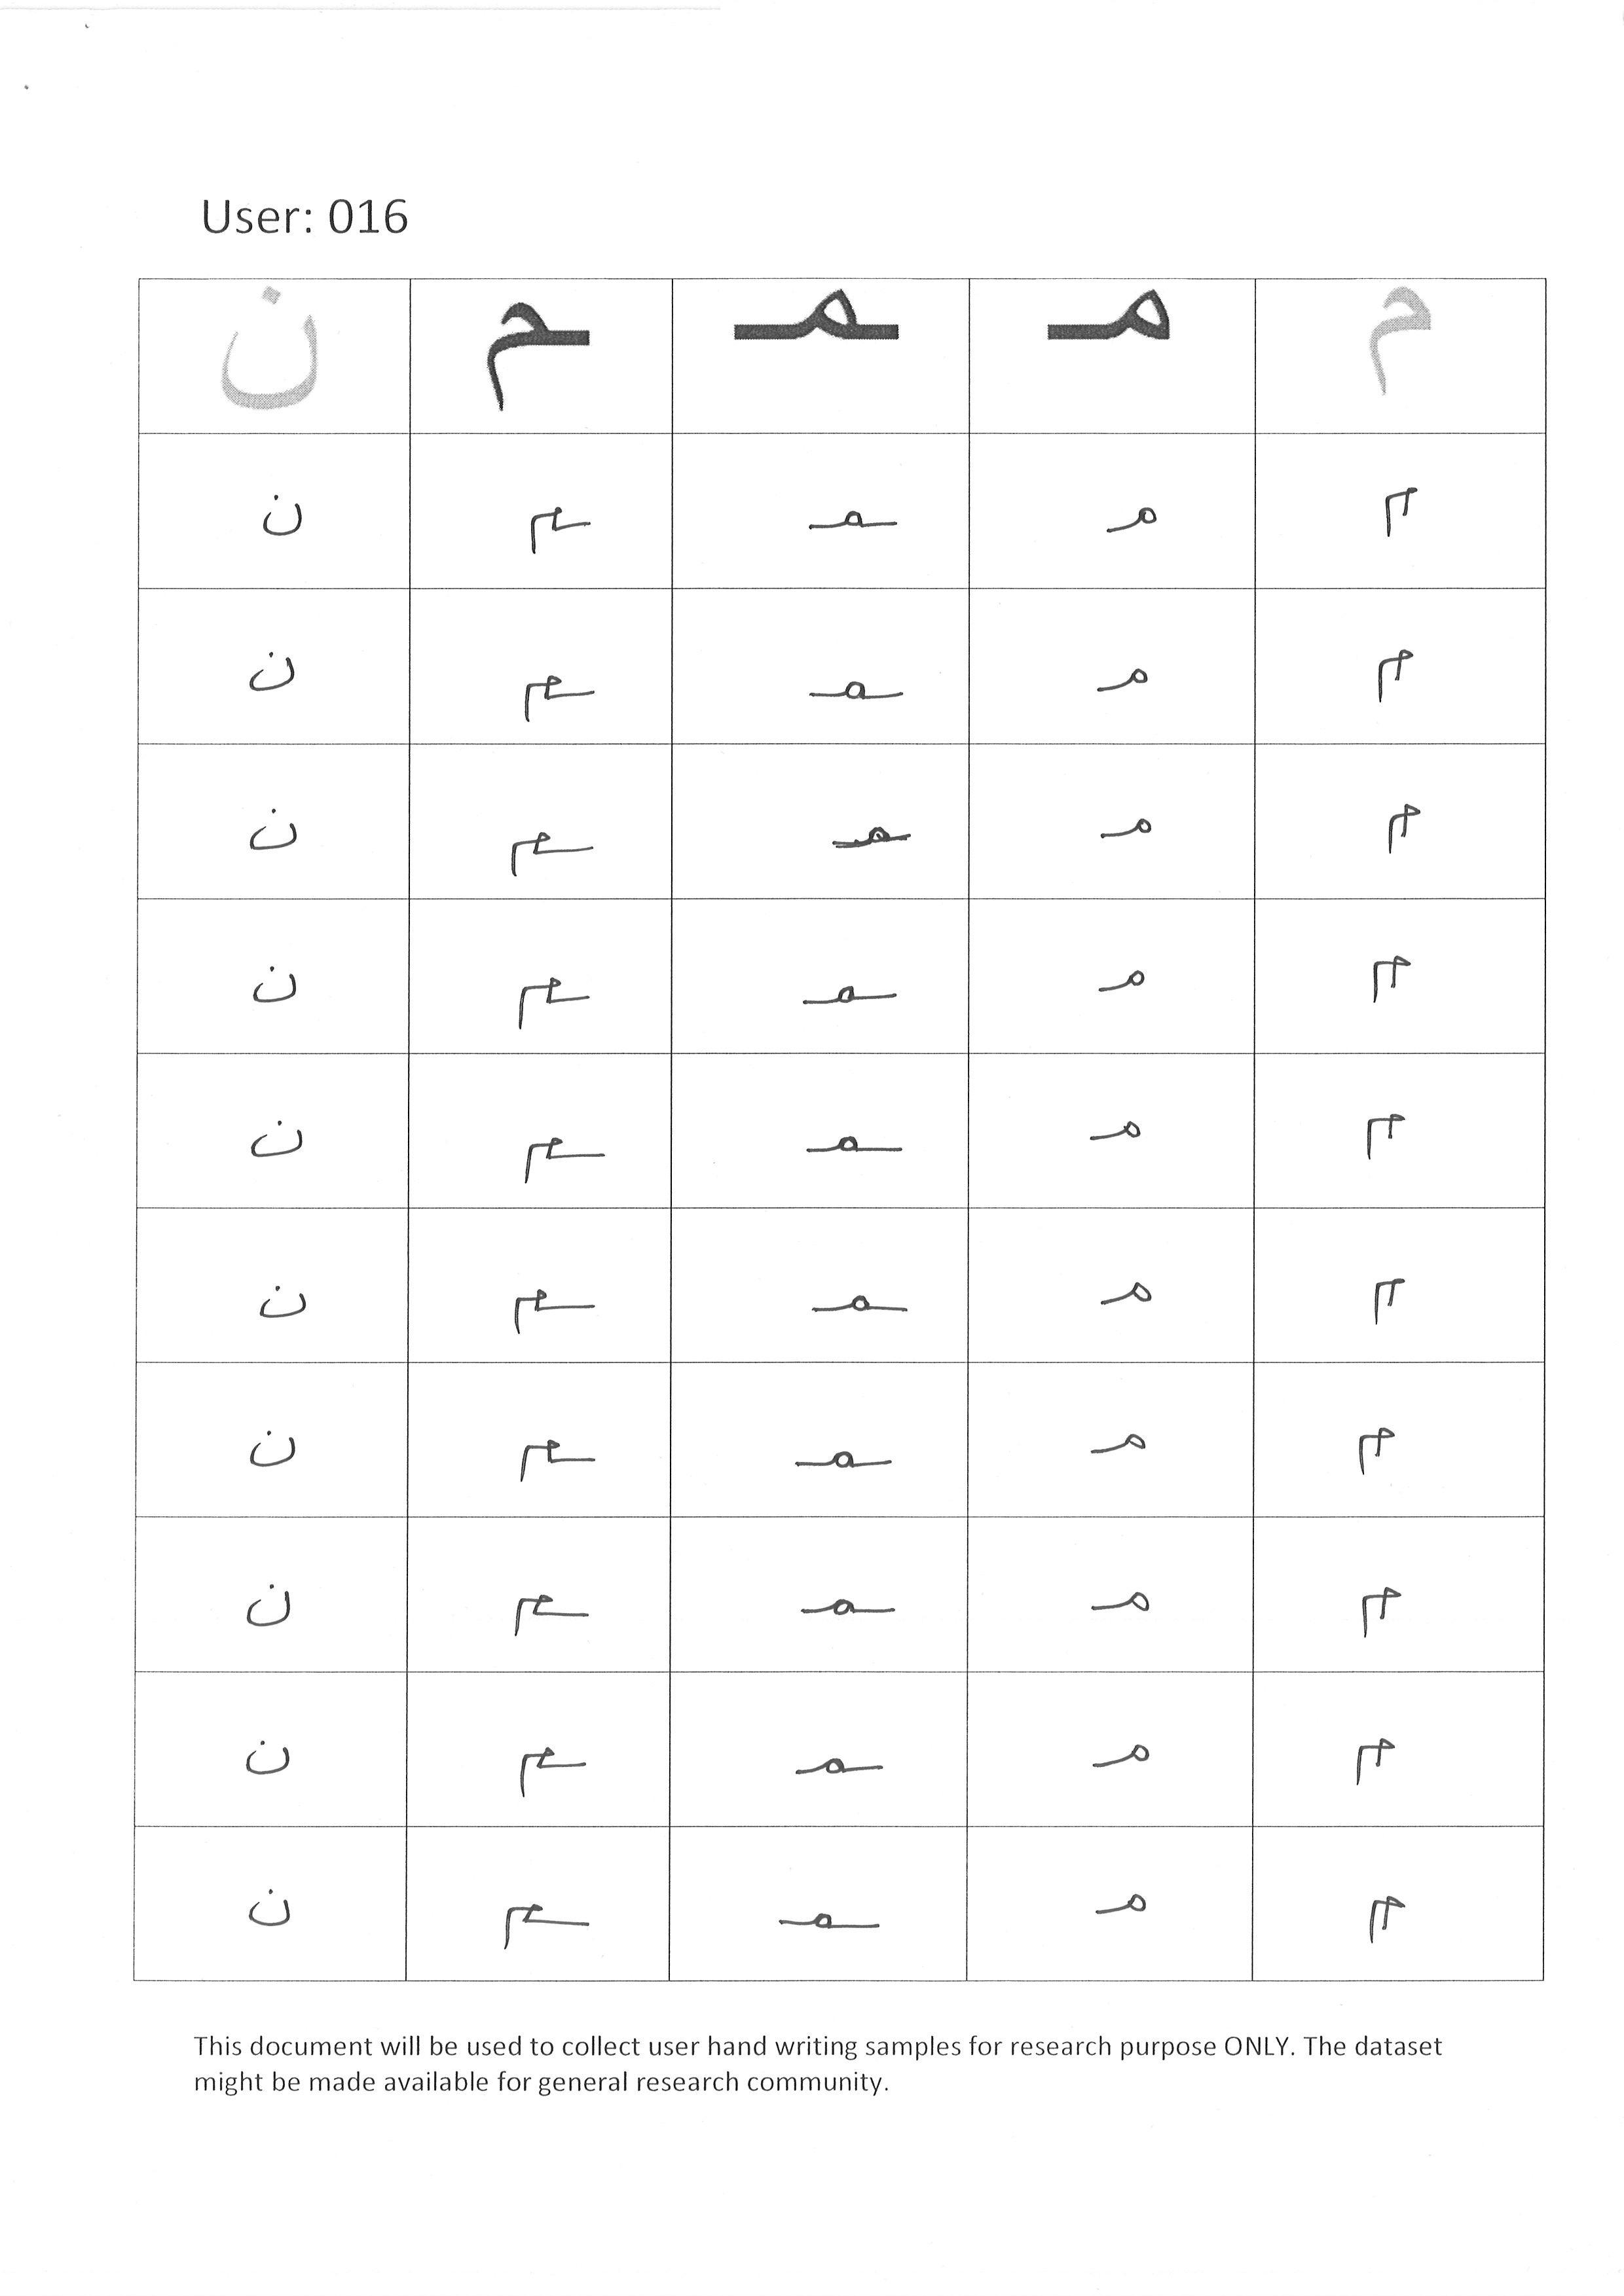 User: 016
م مـ ـمـ ـم ن
م مـ ـمـ ـم ن
م مـ ـمـ ـم ن
م مـ ـمـ ـم ن
م مـ ـمـ ـم ن
م مـ ـمـ ـم ن
م مـ ـمـ ـم ن
م مـ ـمـ ـم ن
م مـ ـمـ ـم ن
م مـ ـمـ ـم ن
م مـ ـمـ ـم ن
This document will be used to collect user hand writing samples for research purpose ONLY. The dataset
might be made available for general research community.